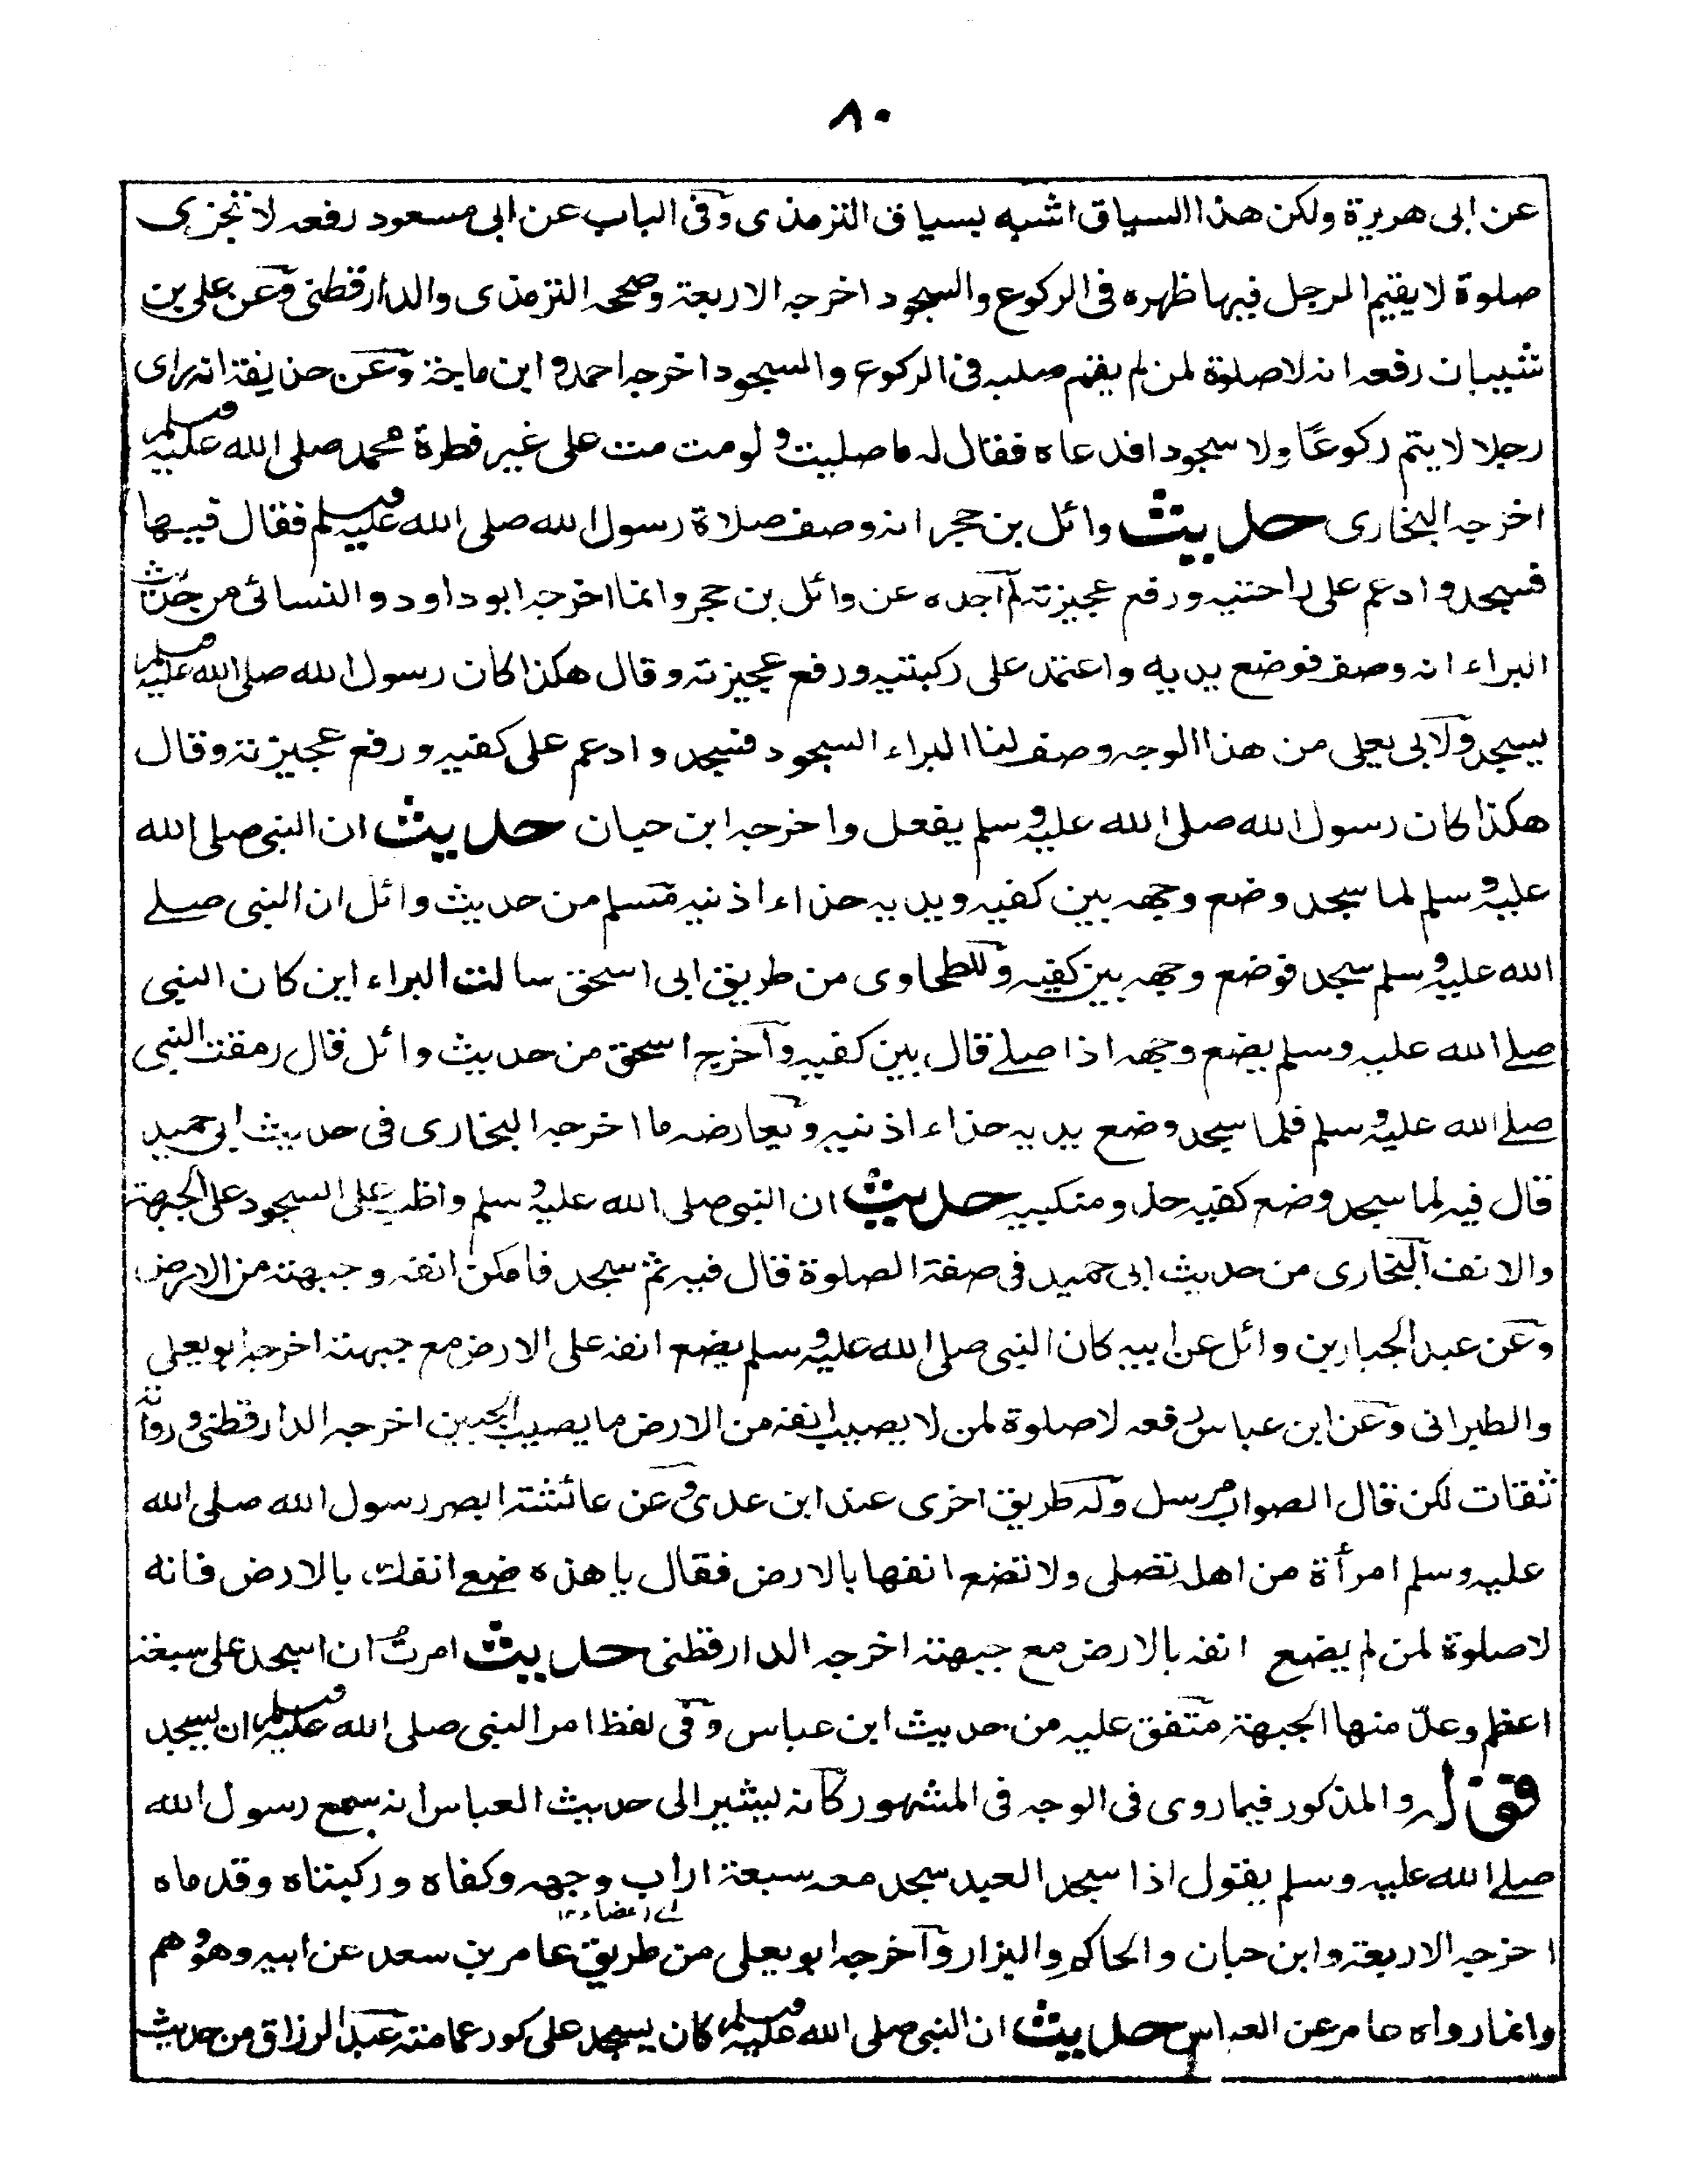 ٨٠
عن ابى هريرة ولكن هذا السياق اشبه بسياق الترمذى وفى الباب عن ابى مسعود رفعه لا تجزى
صلوة لا يقيم الرجل فيها ظهره فى الركوع والسجود اخرجه الاربعة وصححه الترمذى والدارقطنى وعن على بن
شيبان رفعه انه لا صلوة لمن لم يقم صلبه فى الركوع والسجود اخرجه احمد وابن ماجة وعن حذيفة انه راى
رجلا لا يتم ركوعًا ولا سجودا فدعاه فقال له ما صليت ولو مت مت على غير فطرة محمد صلى الله عليه وسلم
اخرجه البخارى حديث وائل بن حجر انه وصف صلاة رسول الله صلى الله عليه وسلم فقال فيها
فسجد وادعم على راحتيه ورفع عجيزته لم اجده عن وائل بن حجر وانما اخرجه ابو داود والنسائى من حديث
البراء انه وصف فوضع يديه واعتمد على ركبتيه ورفع عجيزته وقال هكذا كان رسول الله صلى الله عليه وسلم
يسجد ولابى يعلى من هذا الوجه وصف لنا البراء السجود فسجد وادعم على كفيه ورفع عجيزته وقال
هكذا كان رسول الله صلى الله عليه وسلم يفعل واخرجه ابن حبان حديث ان النبى صلى الله
عليه وسلم لما سجد وضع وجهه بين كفيه ويديه حذاء اذنيه مسلم من حديث وائل ان النبى صلے
الله عليه وسلم سجد فوضع وجهه بين كفيه وللطحاوى من طريق ابى اسحق سالت البراء اين كان النبى
صلے الله عليه وسلم يضع وجهه اذا صلے قال بين كفيه واخرج اسحق من حديث وائل قال رمقت النبى
صلے الله عليه وسلم فلما سجد وضع يديه حذاء اذنيه ويعارضه ما اخرجه البخارى فى حديث ابى حميد
قال فيه لما سجد وضع كفيه حذو منكبيه حديث ان النبى صلى الله عليه وسلم واظب على السجود على الجبهة
والانف البخارى من حديث ابى حميد فى صفة الصلوة قال فيه ثم سجد فامكن انفه وجبهته من الارض
وعن عبد الجبار بن وائل عن ابيه كان النبى صلى الله عليه وسلم يضع انفه على الارض مع جبهته اخرجه ابو يعلى
والطبرانى وعن ابن عباس رفعه لا صلوة لمن لا يصيب انفه من الارض ما يصيب الجبين اخرجه الدارقطنى ورواته
ثقات لكن قال الصواب مرسل وله طريق اخرى عند ابن عدى وعن عائشة ابصر رسول الله صلى الله
عليه وسلم امرأة من اهله تصلى ولا تضع انفها بالارض فقال يا هذه ضعى انفك بالارض فانه
لا صلوة لمن لم يضع انفه بالارض مع جبهته اخرجه الدارقطنى حديث امرت ان اسجد على سبعة
اعظم وعدّ منها الجبهة متفق عليه من حديث ابن عباس وفى لفظ امر النبى صلى الله عليه وسلم ان يسجد
قوله والمذكور فيما روى فى الوجه فى المشهور كانه يشير الى حديث العباس انه سمع رسول الله
صلے الله عليه وسلم يقول اذا سجد العبد سجد معه سبعة اراب وجهه وكفاه وركبتاه وقدماه
اے اعضاء ١٢
اخرجه الاربعة وابن حبان والحاكم والبزار واخرجه ابو يعلى من طريق عامر بن سعد عن ابيه وهو وهم
وانما رواه عامر عن العباس حديث ان النبى صلى الله عليه وسلم كان يسجد على كور عمامته عبد الرزاق من حديث